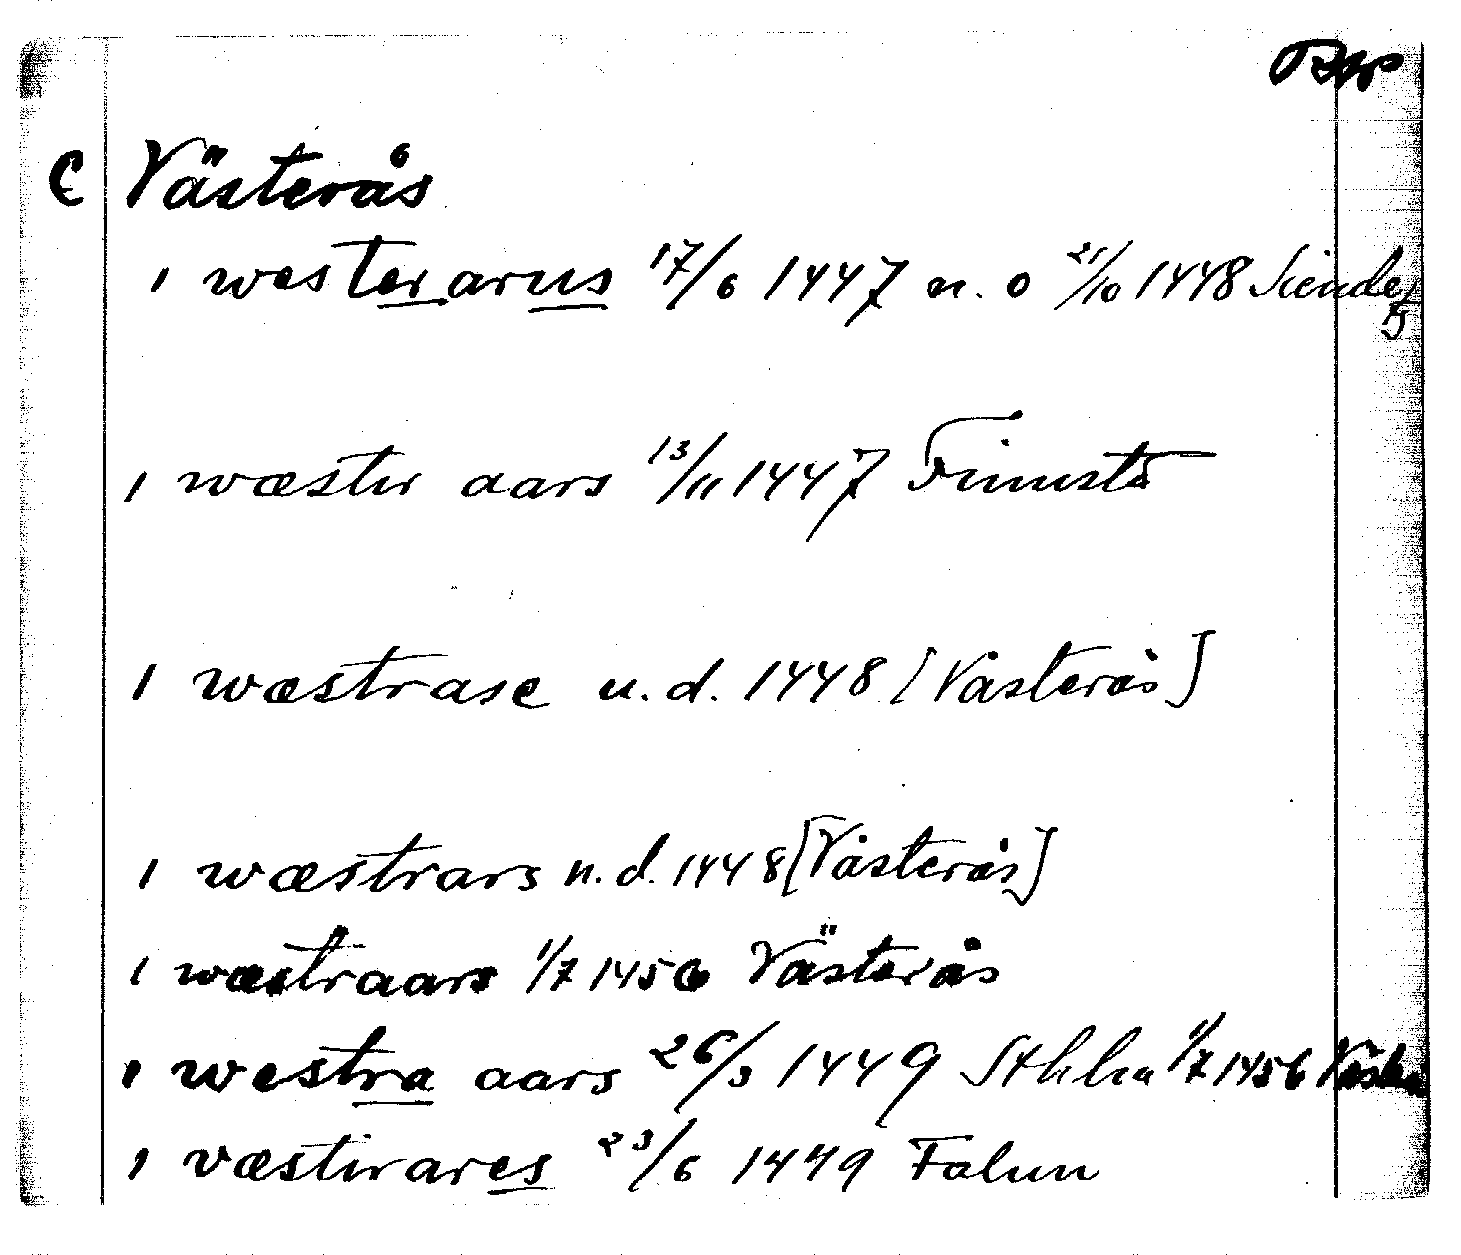 C Västerås
1 westerarus 17/6 1447 n. o 21/10 1448
1 wæster aars 13/11 1447 Finnsta
1 wæstrase u. d. 1448 [Västerås]
1 wæstrars n. d. 1448 [Västerås]
1 wæstraars 1/7 1456 Västerås
1 westra aars 26/3 1449 Sthlm 1/7 1456
1 væstirares 23/6 1449 Falun